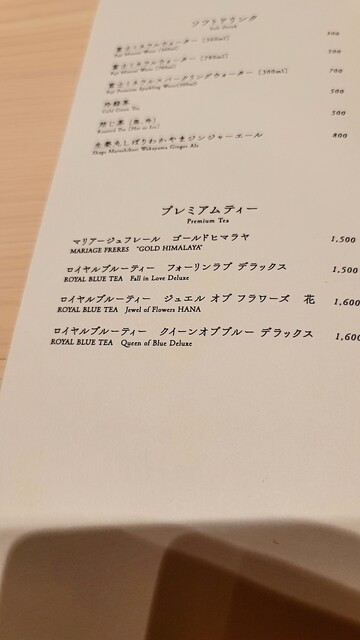 ソフトドリンク
Soft Drink
富士ミネラルウォーター [500ml] 500
Fuji Mineral Water
富士ミネラルウォーター [780ml] 700
Fuji Mineral Water
富士ミネラルスパークリングウォーター [300ml] 700
Fuji Premium Sparkling Water
冷緑茶 500
Cold Green Tea
焙じ茶 500
Roasted Tea (Hot or Ice)
生姜丸しぼりわかやまジンジャーエール 800
Shoga Marushibori Wakayama Ginger Ale
プレミアムティー
Premium Tea
マリアージュフレール ゴールドヒマラヤ 1,500
MARIAGE FRERES "GOLD HIMALAYA"
ロイヤルブルーティー フォーリンラブ デラックス 1,500
ROYAL BLUE TEA Fall in Love Deluxe
ロイヤルブルーティー ジュエル オブ フラワーズ 花 1,600
ROYAL BLUE TEA Jewel of Flowers HANA
ロイヤルブルーティー クイーンオブブルー デラックス 1,600
ROYAL BLUE TEA Queen of Blue Deluxe